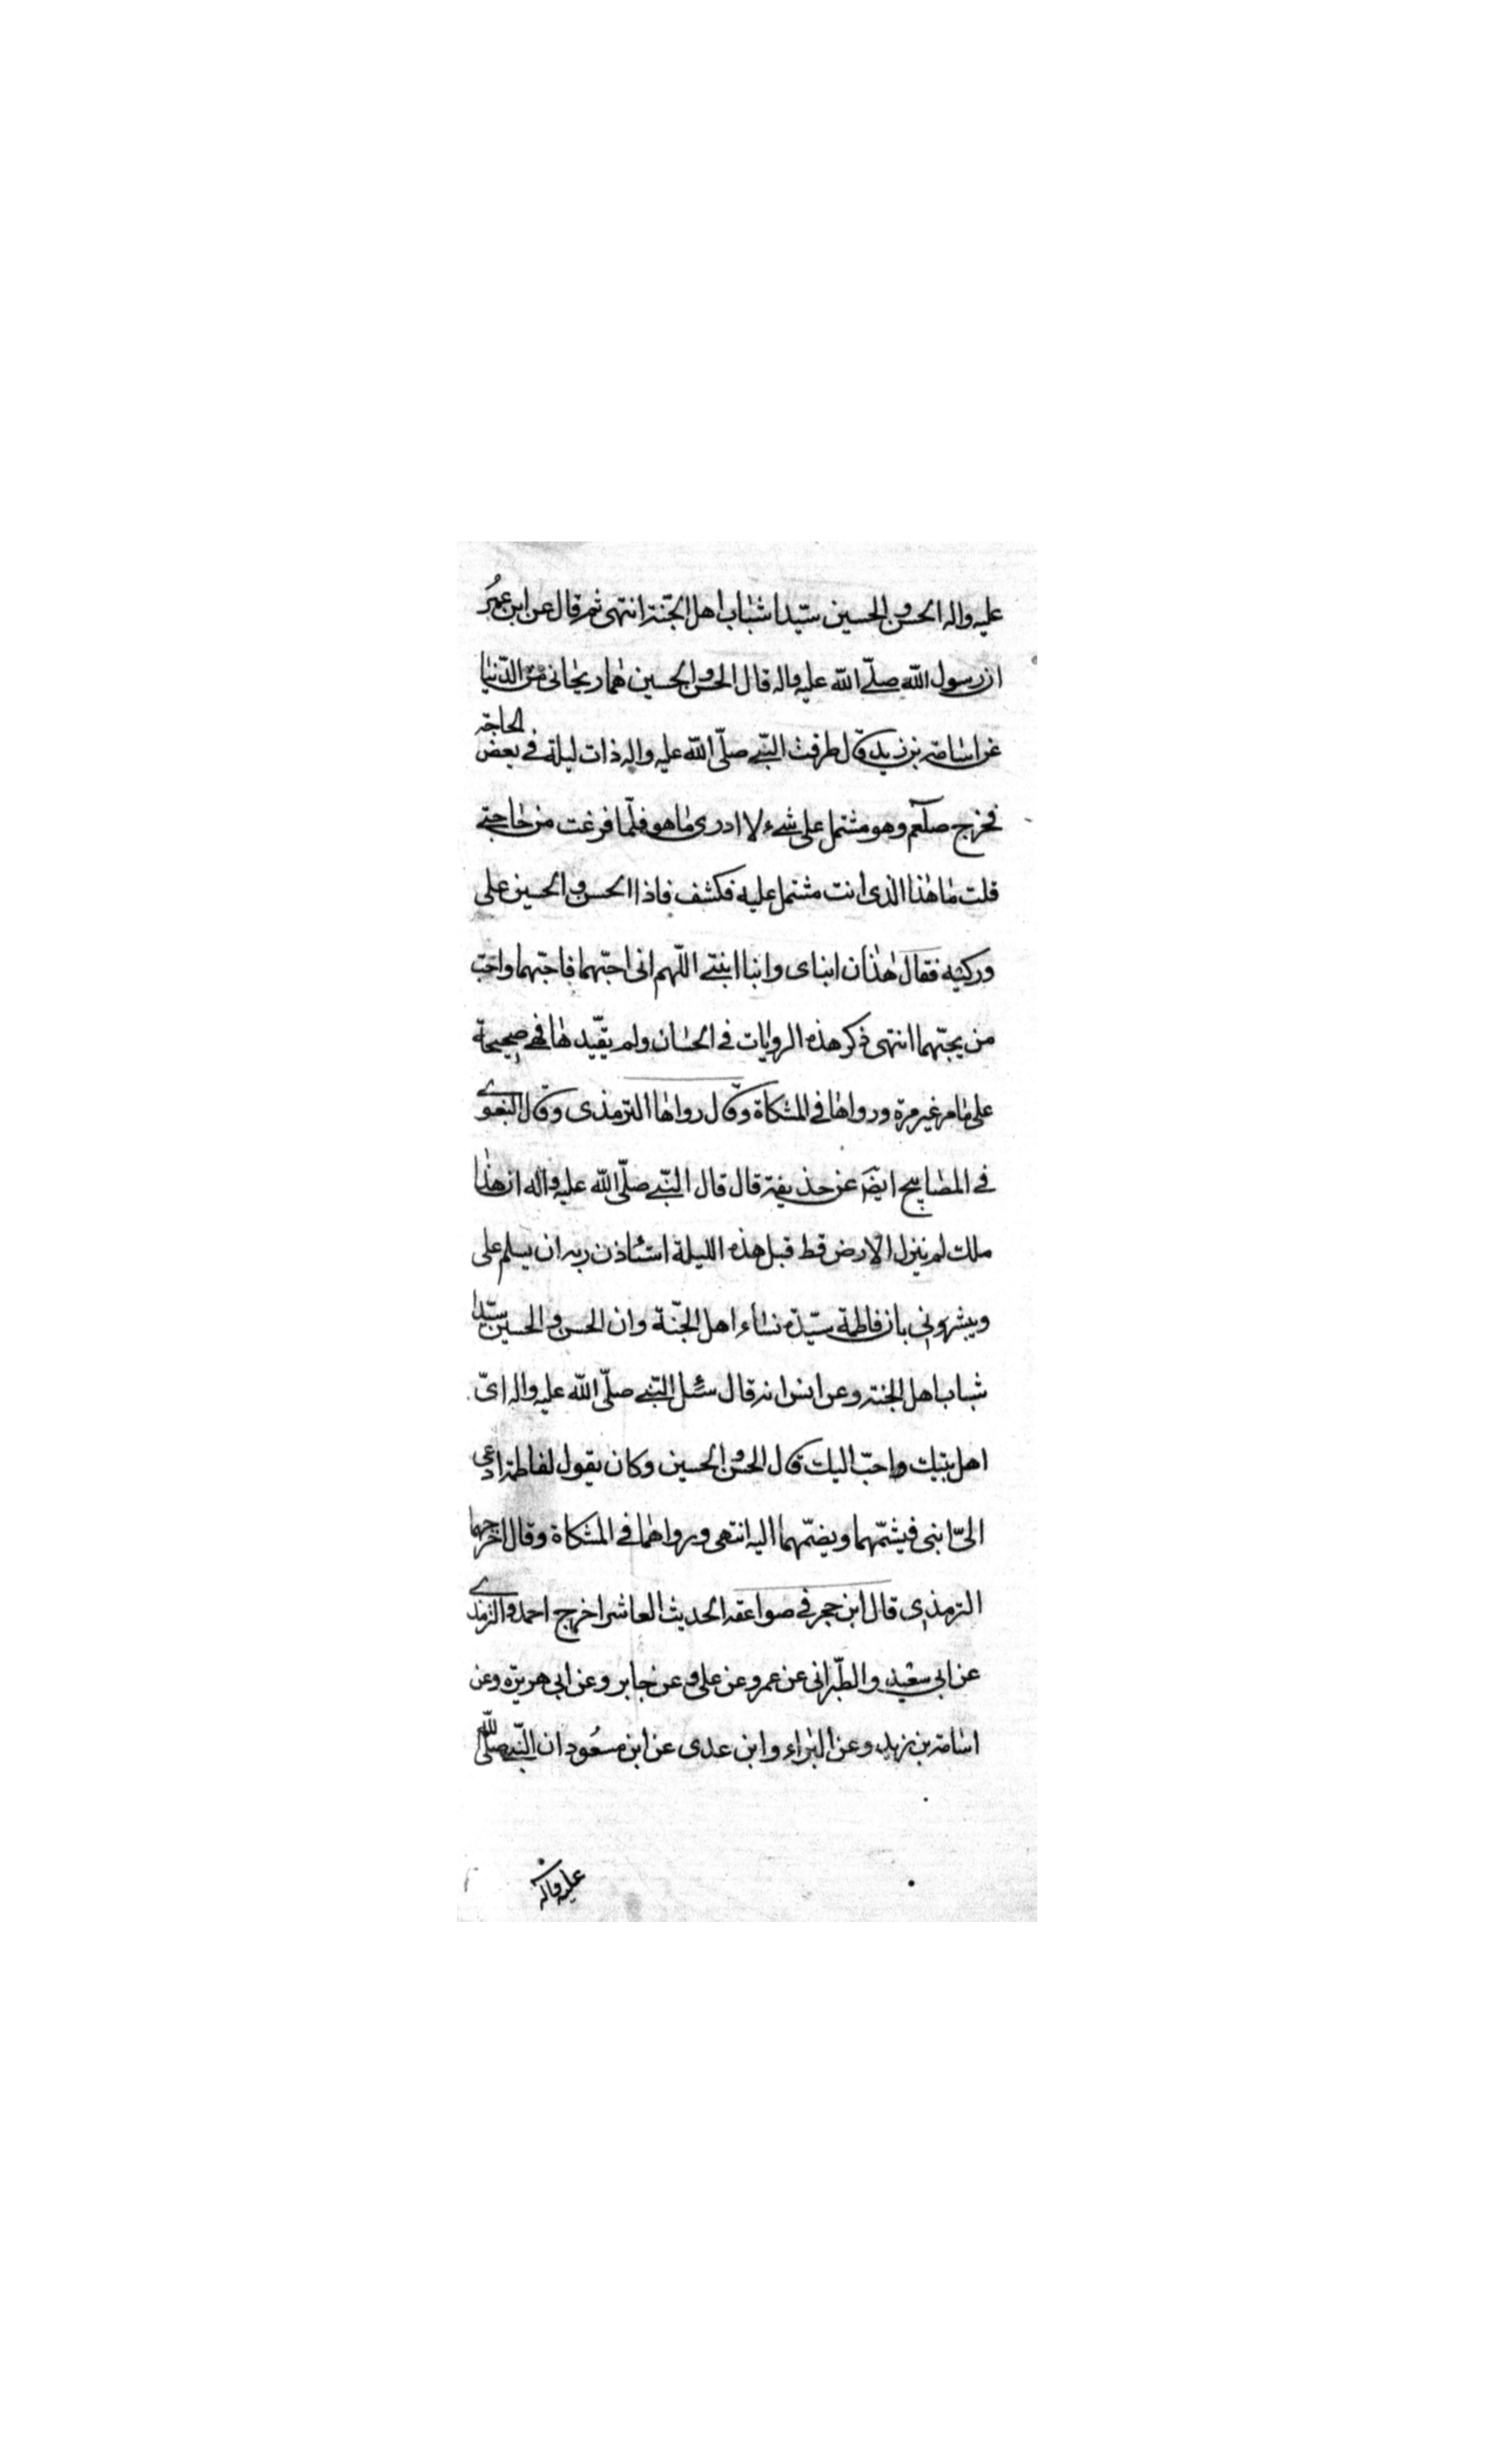 عليه واله الحسن والحسين سيّدا شباب اهل الجنّة انتهى ثم قال عن ابن عمر
ان رسول الله صلّى الله عليه واله قال الحسن والحسين هما ريحانى من الدّنيا
عن اسامة بن زيد قال طرقت النّبى صلّى الله عليه واله ذات ليلة فى بعض الحاجة
فخرج صلعم وهو مشتمل على شىء لا ادرى ما هو فلمّا فرغت من حاجتى
قلت ما هذا الذى انت مشتمل عليه فكشف فاذا الحسن والحسين على
وركيه فقال هذان ابناى وابنا ابنتى اللّهم انى احبّهما فاحبّهما واحبّ
من يحبّهما انتهى ذكر هذه الروايات فى الحسان ولم يقيّدها فهى صحيحة
على ما مر غير مرة ورواها فى المشكاة وقال رواها الترمذى وقال البغوى
فى المصابيح ايضا عن حذيفة قال قال النّبى صلّى الله عليه واله ان هذا
ملك لم ينزل الارض قط قبل هذه الليلة استاذن ربه ان يسلم على
ويبشرونى بان فاطمة سيّدة نساء اهل الجنّة وان الحسن والحسين سيّدا
شباب اهل الجنة وعن انس انه قال سئل النّبى صلّى الله عليه واله اىّ
اهل بيتك احبّ اليك قال الحسن والحسين وكان يقول لفاطمة ادعى
الىّ ابنى فيشمّهما ويضمّهما اليه انتهى ورواهما فى المشكاة وقال اخرجهما
الترمذى قال ابن حجر فى صواعقه الحديث العاشر اخرج احمد والترمذى
عن ابى سعيد والطبرانى عن عمر وعن على وعن جابر وعن ابى هريرة وعن
اسامة بن زيد وعن البراء وابن عدى عن ابن مسعود ان النّبى صلّى الله
عليه واله